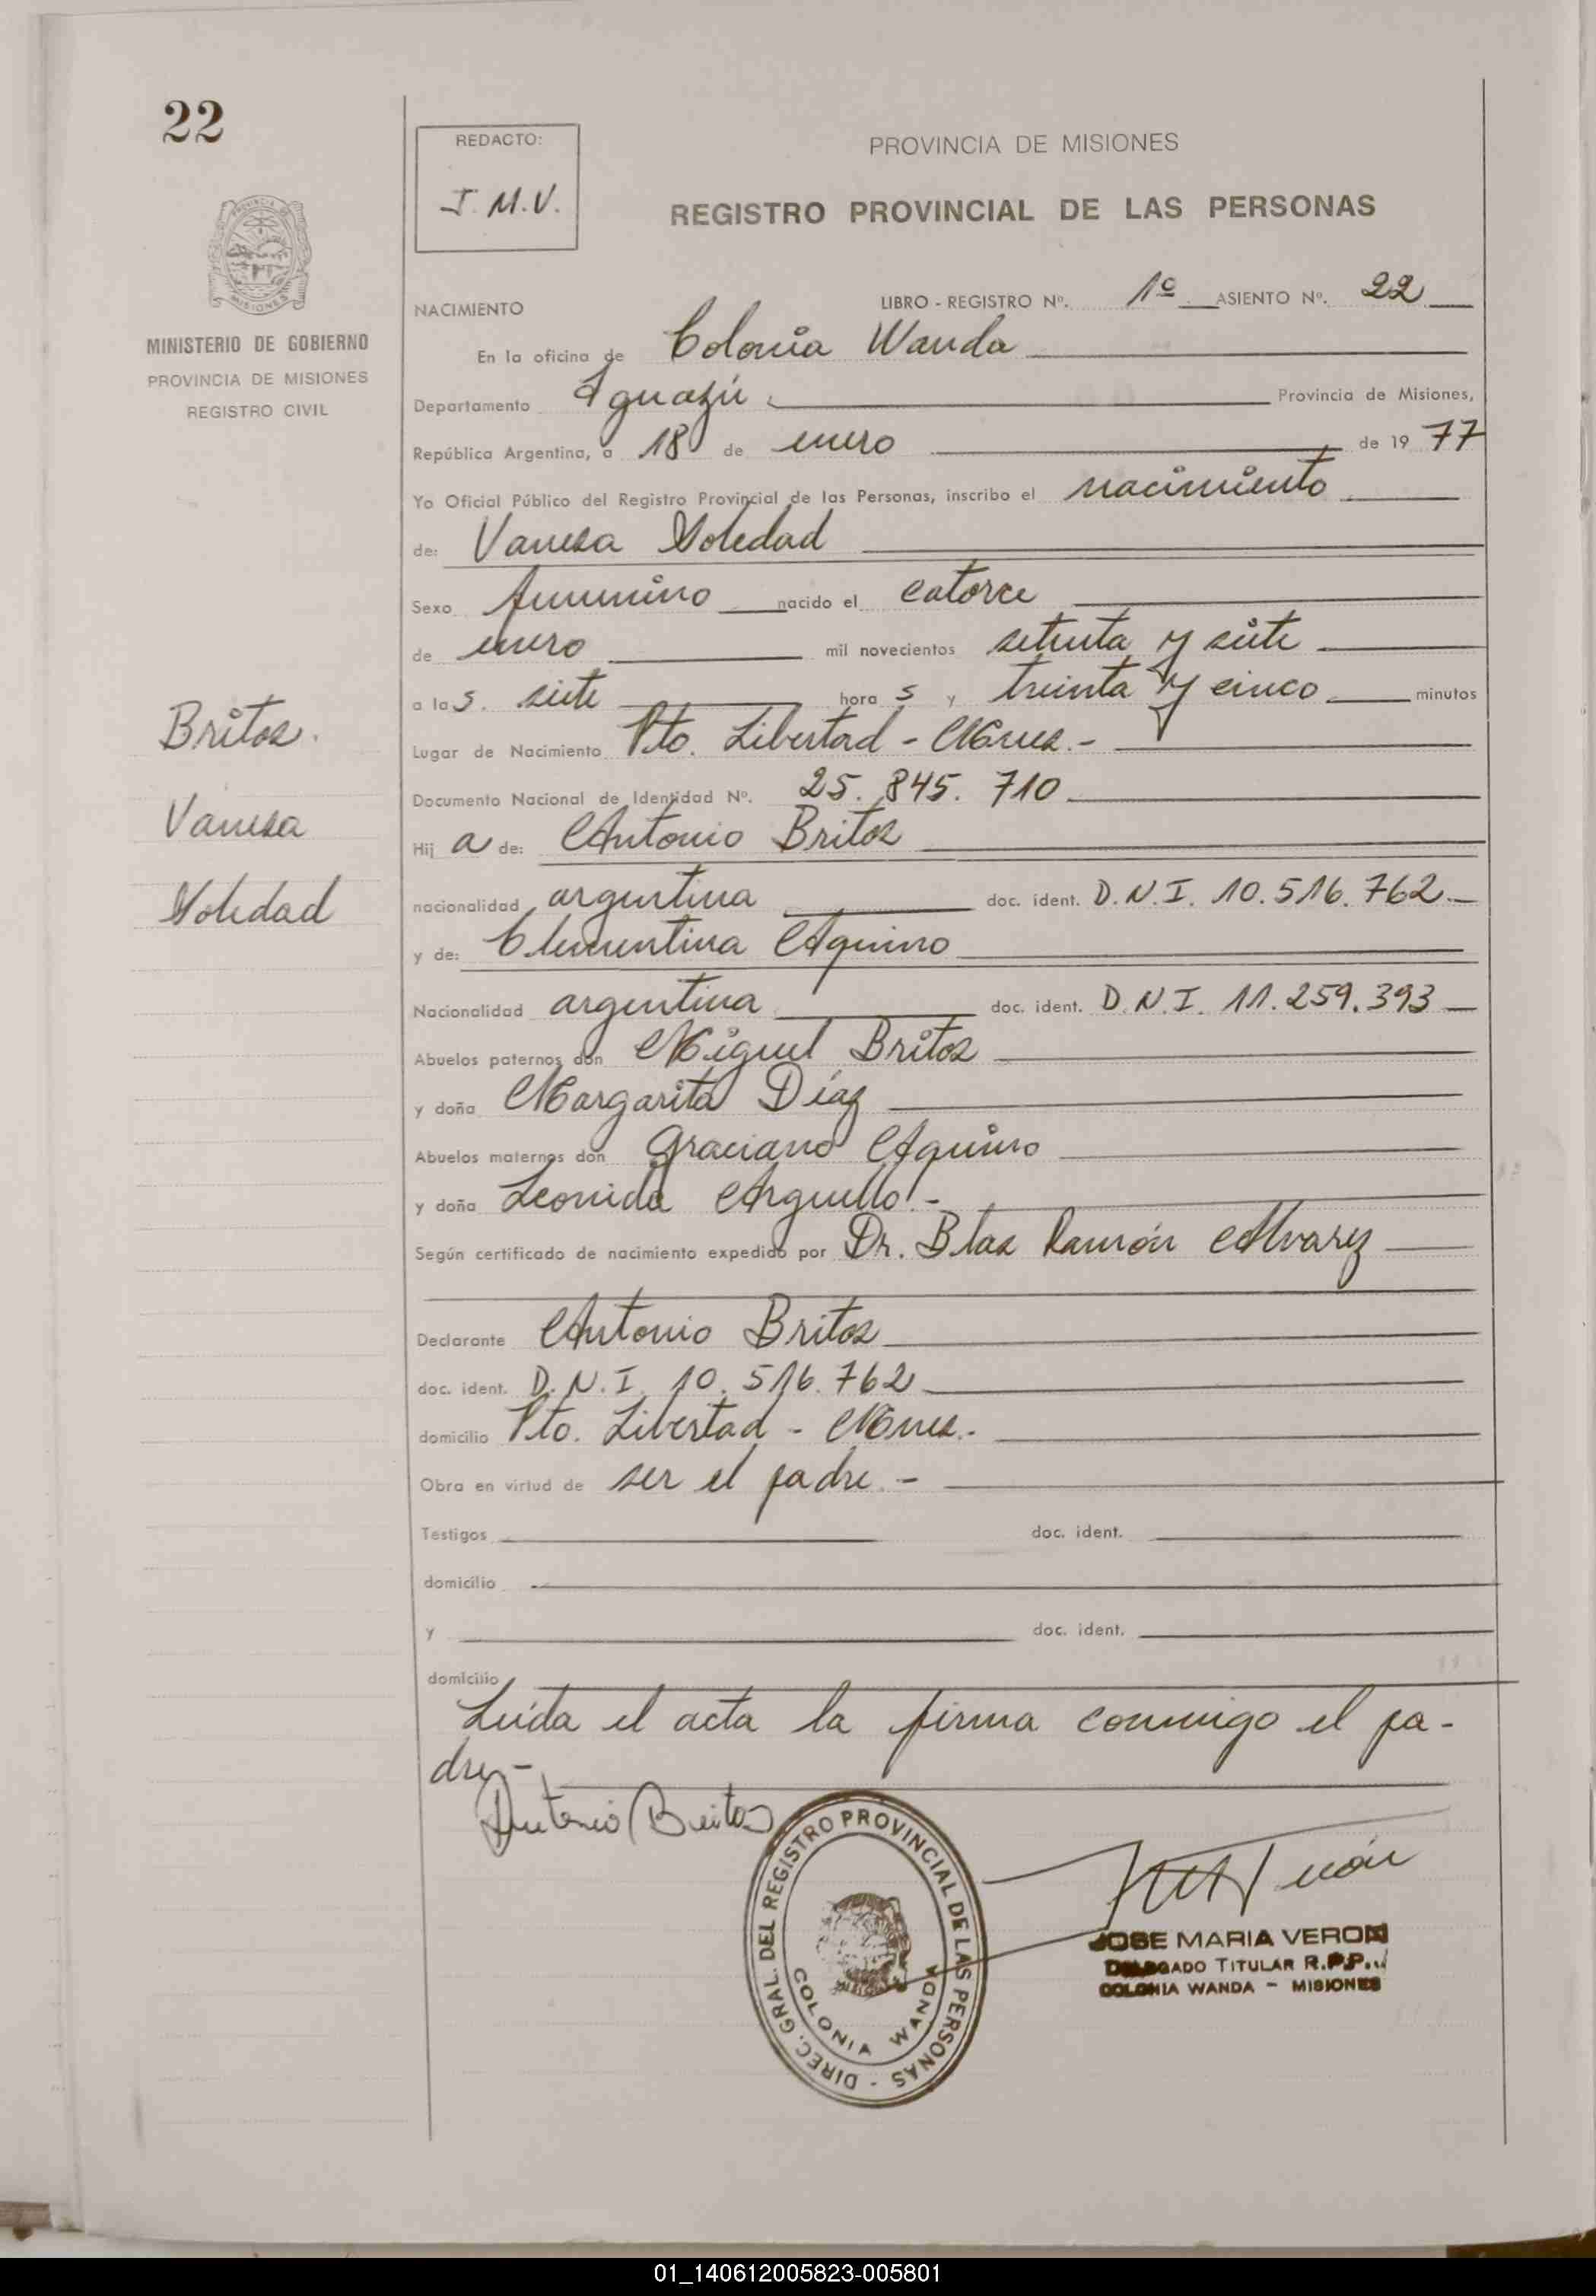 22
REDACTO:
J. M. V.
PROVINCIA DE MISIONES
REGISTRO PROVINCIAL DE LAS PERSONAS
MINISTERIO DE GOBIERNO
PROVINCIA DE MISIONES
REGISTRO CIVIL
Britos.
Vanesa
Soledad
NACIMIENTO LIBRO - REGISTRO Nº. 1º ASIENTO Nº. 22
En la oficina de Colonia Wanda
Departamento Iguazú Provincia de Misiones,
República Argentina, a 18 de enero de 19 77
Yo Oficial Público del Registro Provincial de las Personas, inscribo el nacimiento
de: Vanesa Soledad
Sexo femenino nacido el catorce
de enero mil novecientos setenta y siete
a las. siete hora s y treinta y cinco minutos
Lugar de Nacimiento Pto. Libertad - Mnes.-
Documento Nacional de Identidad Nº. 25.845.710
Hij a de: Antonio Britos
nacionalidad argentina doc. ident. D.N.I. 10.516.762.-
y de: Clementina Aquino
Nacionalidad argentina doc. ident. D.N.I. 11.259.393
Abuelos paternos don Miguel Britos
y doña Margarita Díaz
Abuelos maternos don Graciano Aquino
y doña Leonida Arguello.-
Según certificado de nacimiento expedido por Dr. Blas Ramón Alvarez
Declarante Antonio Britos
doc. ident. D.N.I. 10.516.762
domicilio Pto. Libertad - Mnes.-
Obra en virtud de ser el padre.-
Testigos doc. ident.
domicilio
y doc. ident.
domicilio
Leída el acta la firma conmigo el pa-
dre.-
Antonio Britos
DIREC. GRAL. DEL REGISTRO PROVINCIAL DE LAS PERSONAS -
COLONIA WANDA
JOSE MARIA VERON
DELEGADO TITULAR R.P.P.
COLONIA WANDA - MISIONES
01_140612005823-005801